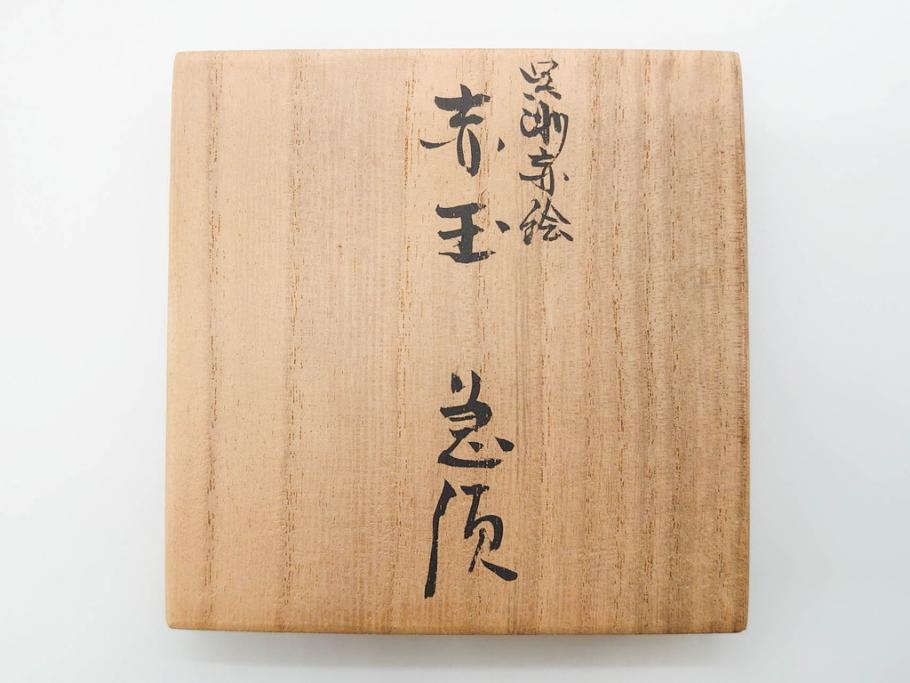 呉洲赤絵
赤玉 急須